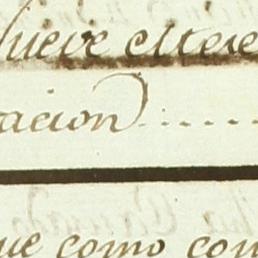 nueve
acion.....
que como con